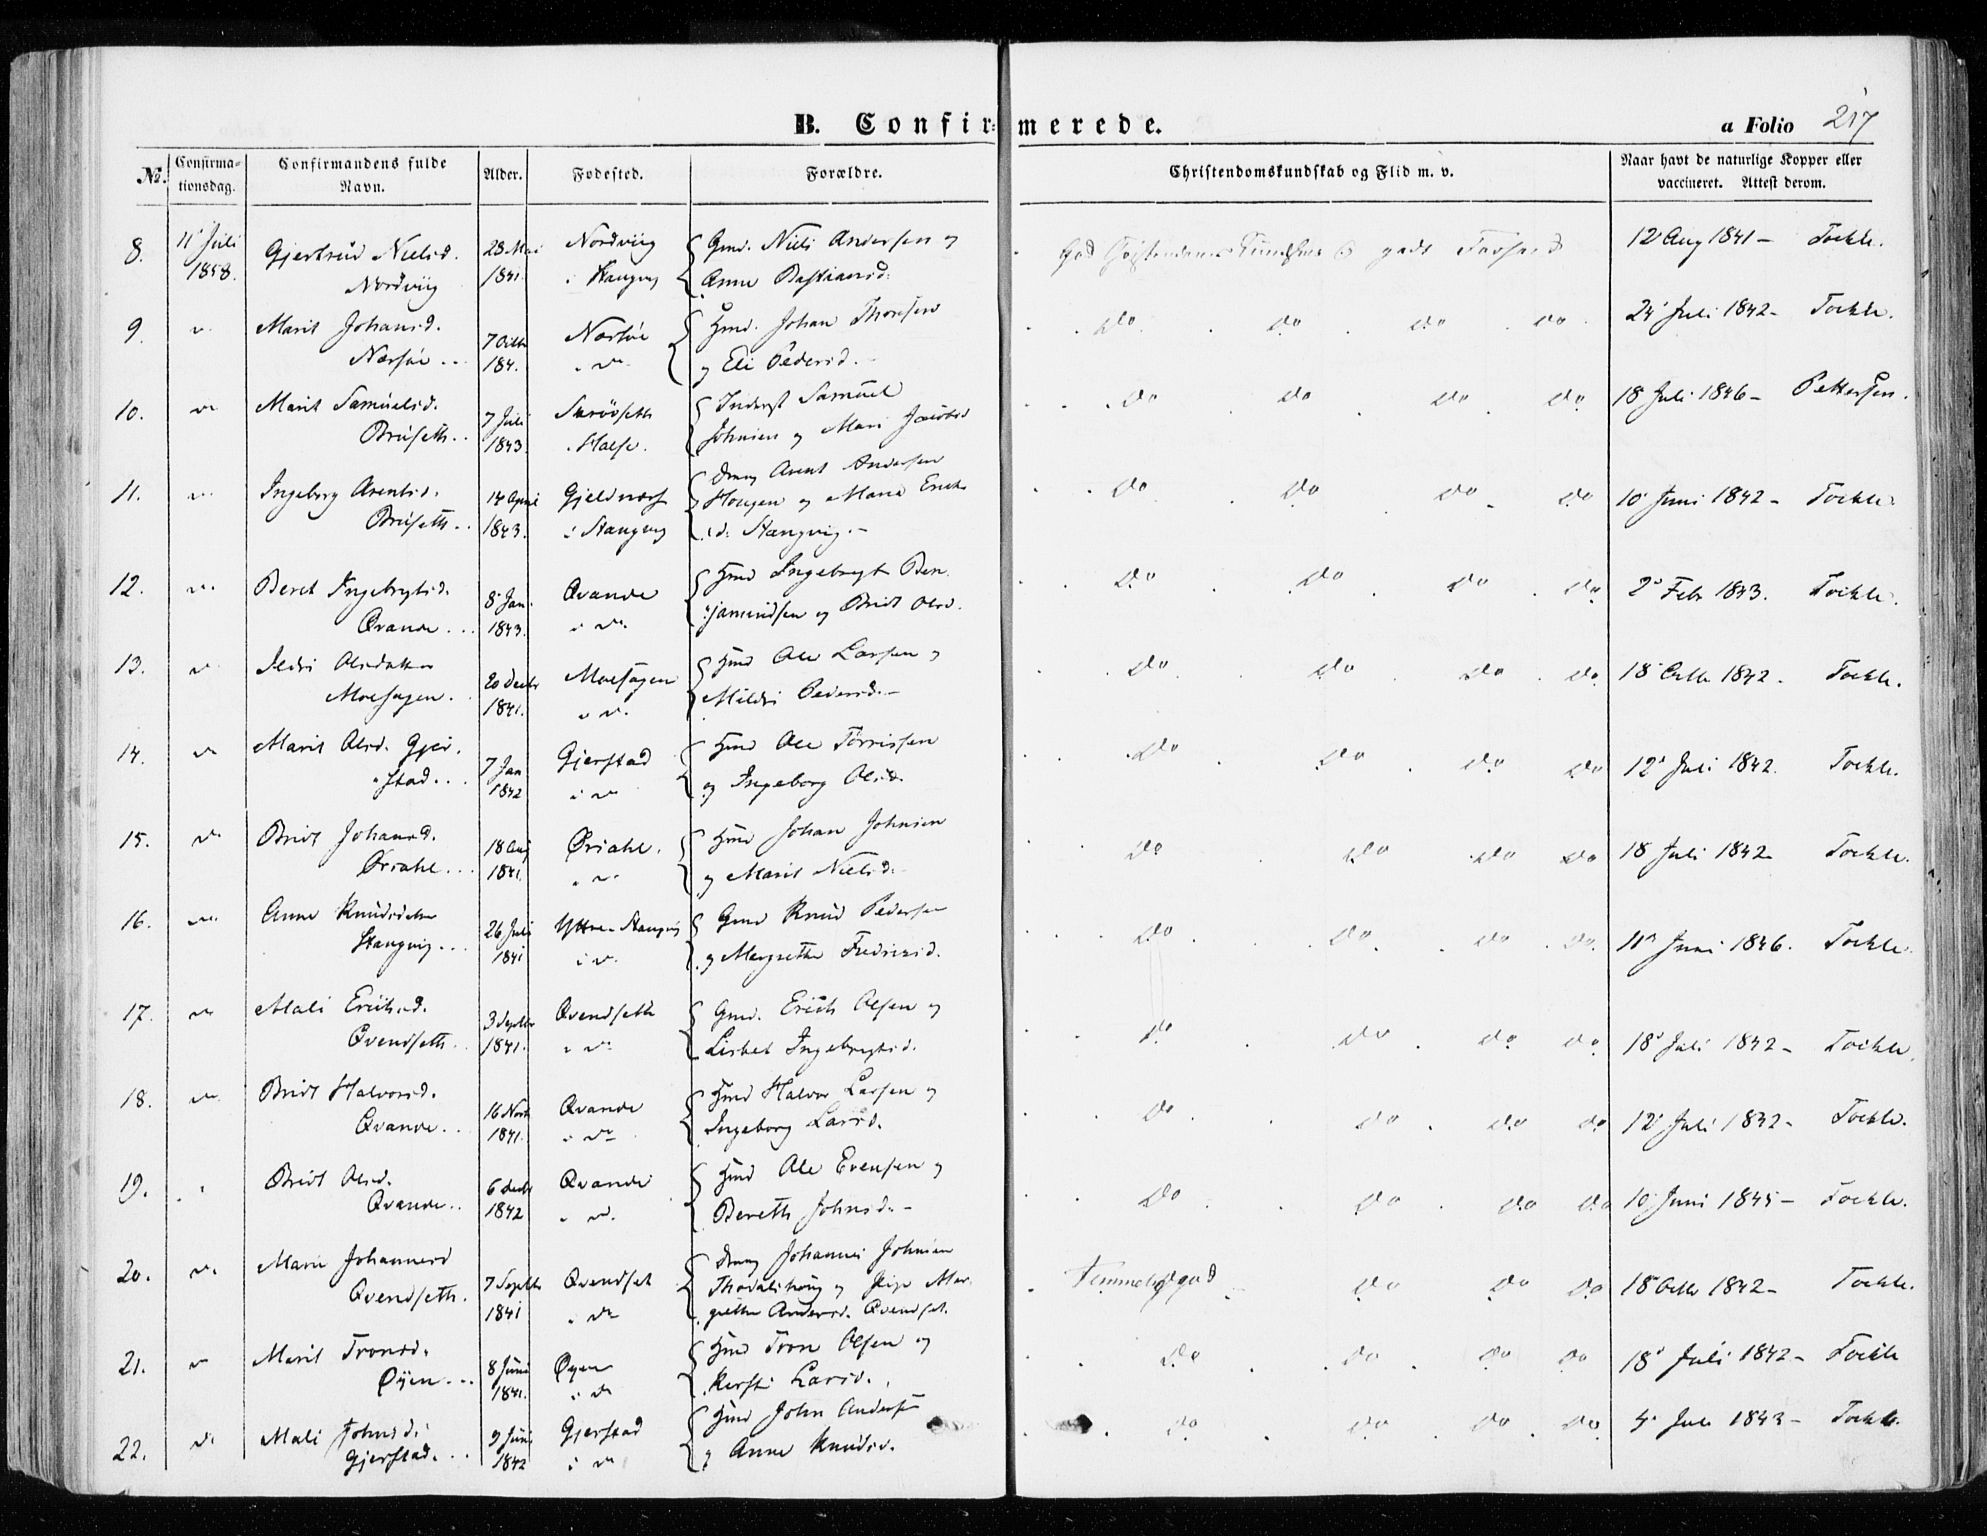 B. Confirmerede.
a Folio 217
No.
Confirmationsdag.
Confirmandens fulde Navn.
Alder.
Fødested.
Forældre.
Christendomskundskab og Flid m. v.
Naar havt de naturlige Kopper eller vaccineret. Attest derom.
8. 11 Juli 1858. Gjertrud Nielsd. Nordviig 28 Mai 1841. Nordviig i Stangvig Gmd. Niels Andersen og Anne Bastiansd. God Christendoms Kundskab & gods Forhold 12 Aug 1841 - Toehle.
9. do Marit Johansd. Næsøe 7 Octbr 184. Næsøe i do Hmd. Johan Thoresen og Eli Pedersd. Do do do do 24 Juli 1842 - Toehle.
10. do Marit Samuelsd. Bruseth 7 Juli 1843. Halse. Inderst Samuel Johnsen og Mari Jacobsd do do do do 18 Juli 1846 - Pettersen.
11. do Ingeborg Arentsd. Bruseth 14 April 1843. Gjeldnæs i Stangvig Arent Andersen Haugen og Maria Erichsd. Stangvig. - do do do do 10 Juni 1842 - Toehle.
12. do Beret Ingebrigtsd. Qvande 8 Jan. 1843. Qvande i do. Hmd Ingebrigt Benjaminsen og Brit Olsd. do do do do 2 Febr 1843. Toehle.
13. do Ildri Olsdatter Moehagen. 20 Decbr 1841. Moehagen i do. Hmd Ole Larsen og Mildri Pedersd. - do do do do 18 Octbr 1842. Toehle.
14. do Marit Olsd. Gjerstad. 7 Jan 1842 Gjerstad i do Hmd Ole Tørrissen og Ingeborg Olsd. do do do do 12 Juli 1842. Toehle.
15. do Brit Johansd. 18 Aug 1841. i do Hmd Johan Johnsen og Marit Nielsd. do do do do 18 Juli 1842 Toehle.
16. do Anne Knudsdatter Stangvig 26 Juli 1841 Yttre-Stangvig i do. Gmd Knud Pedersen og Margrethe Fredrichsd. do do do do 11 Juni 1846. Toehle.
17. do Mali Erichsd. Qvendseth. 3 Septbr 1841. Qvendseth i do Gmd. Erich Olsen og Lisbet Ingebrigtsd. do do do do 18 Juli 1842 - Toehle.
18. do Brit Halvorsd. Qvande. 16 Novbr 1841. Qvande i do Hmd Halvor Larsen og Ingeborg Larsd. do do do do 12 Juli 1842 - Toehle.
19. Brit Olsd. Qvande. 6 Decbr 1842 Qvande i do. Hmd Ole Evensen og Bereth Johnsd. - do do do do 10 Juni 1845 - Toehle.
20. do Marie Johannesd Qvendseth. 7 Septbr 1841 Qvendset i do Johannes Johnsen og Pige Margrethe Andersd. Qvendset. Temmelig god do do do 18 Octbr 1842 - Toehle.
21. do Marit Tronsd. Øyen 8 Juni 1841. Øyen i do Hmd Tron Olsen og Kersti Larsd. do do do do 18 Juli 1842 - Toehle
22. do Mali Johnsd. Gjerstad. 9 Juni 1842 Gjerstad i do Hmd John Andersen og Anne Knudsd. do do do do 4 Juli 1843 - Toehle.